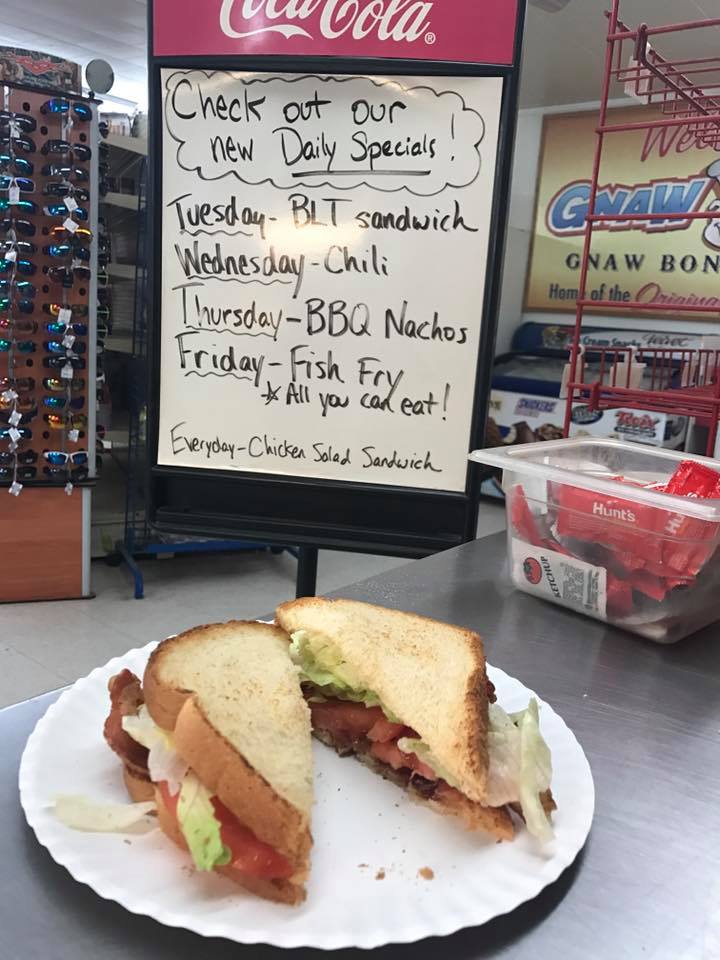 Coca-Cola®
Check out our
new Daily Specials!
Tuesday - BLT sandwich
Wednesday - Chili
Thursday - BBQ Nachos
Friday - Fish Fry
* All you can eat!
Everyday - Chicken Salad Sandwich
GNAW
GNAW BON
Home of the Origina
SNICKERS
Hunt's
Hu
KETCHUP